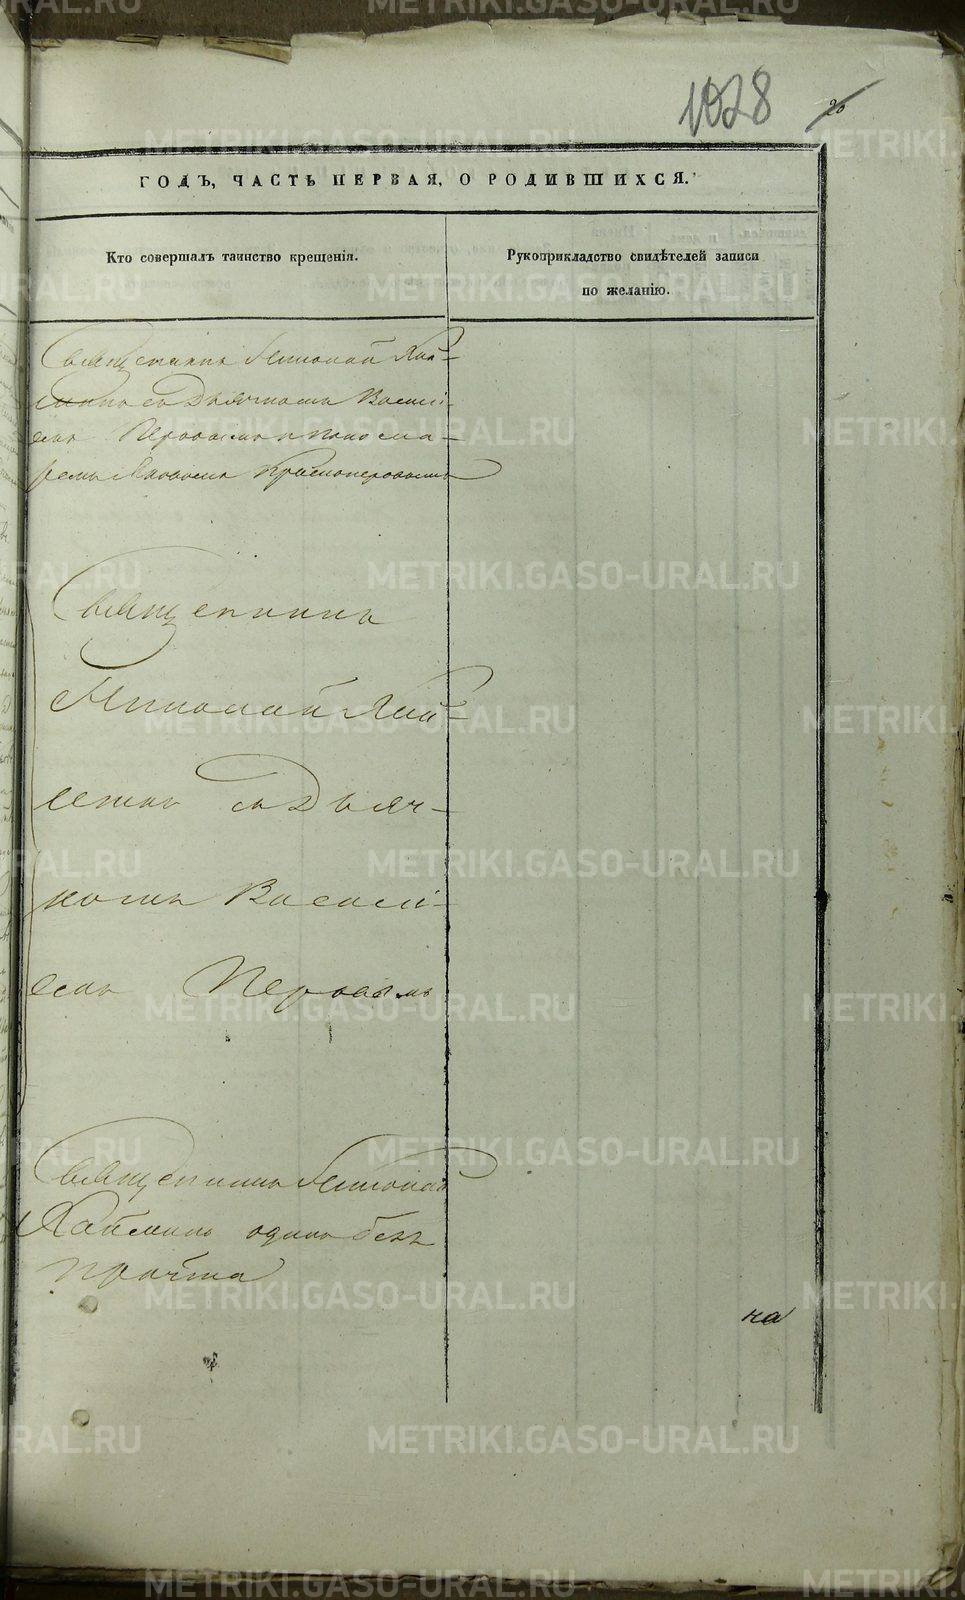 1028
20
ГОДЪ, ЧАСТЬ ПЕРВАЯ, О РОДИВШИХСЯ.
Кто совершалъ таинство крещенія.
Рукоприкладство свидѣтелей записи
по желанію.
Священникъ Николай Хай-
минъ съ Дьячкомъ Васили-
емъ Первовымъ и понома-
ремъ Красноперовымъ
Священникъ
Николай Хай-
минъ съ Дьяч-
комъ Васили-
емъ Первовымъ
Священникъ Николай
Хайминъ одинъ безъ
причта
на
METRIKI.GASO-URAL.RU